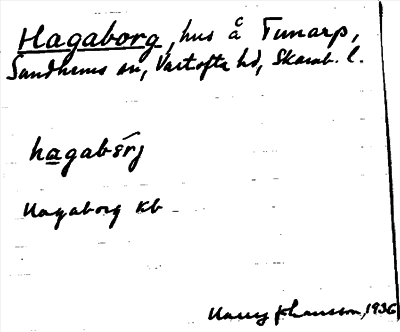 Hagaborg, hus å Tunarp,
Sandhems sn, Vartofta hd, Skarab. l.
hagabɛrj
Hagaborg kb
Harry Johansson, 1936